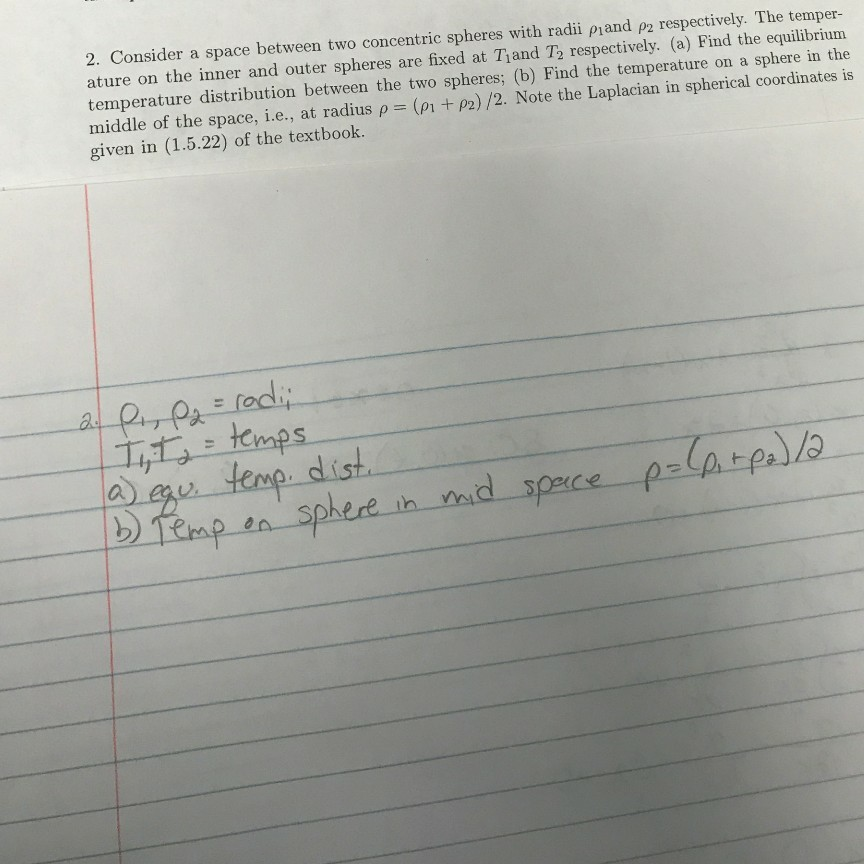 2. Consider a space between two concentric spheres with radii ρ₁and ρ₂ respectively. The temper-
ature on the inner and outer spheres are fixed at T₁and T₂ respectively. (a) Find the equilibrium
temperature distribution between the two spheres; (b) Find the temperature on a sphere in the
middle of the space, i.e., at radius ρ = (ρ₁ + ρ₂) /2. Note the Laplacian in spherical coordinates is
given in (1.5.22) of the textbook.
2. ρ₁, ρ₂ = radii
T₁, T₂ = temps
a) equ. temp. dist.
b) Temp on sphere in mid space ρ=(ρ₁+ρ₂)/2